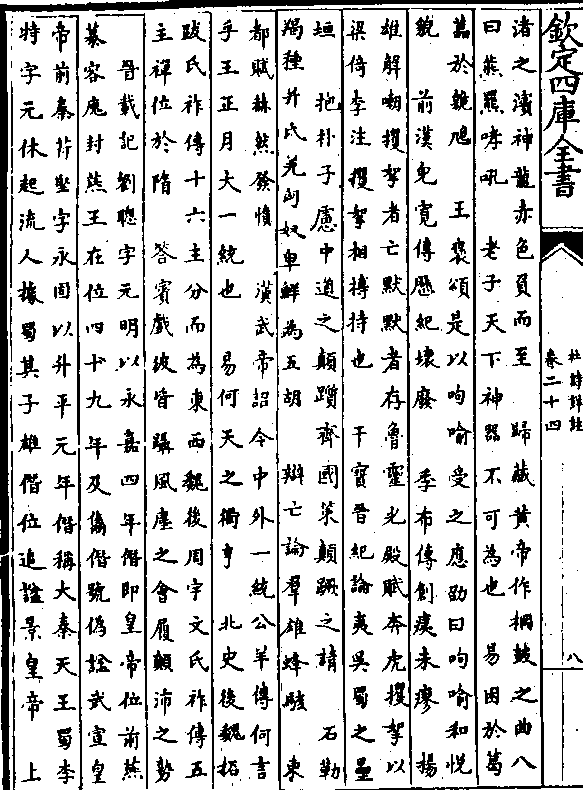 欽定四庫全書
杜詩詳註
卷二十四
八
渚之濱神龍赤色負而至　歸藏黄帝作棡鼓之曲八
曰熊羆哮吼　老子天下神器不可為也　易困於葛
藟於臲卼　王褒頌是以呴喻受之應劭曰呴喻和悦
貌　前漢兒寛傳厯紀壊廢　季布傳創痍未瘳　揚
雄解嘲攫挐者亡默默者存魯靈光殿賦奔虎攫挐以
梁倚李注攫挐相搏持也　干寳晉紀論夷吳蜀之壘
垣　抱朴子慮中道之顛躓齊國策顛蹶之請　石勒
羯種并氐羌匈奴卑鮮為五胡　辯亡論羣雄蜂駭　東
都賦赫然發憤　漢武帝詔今中外一統公羊傳何言
乎王正月大一統也　易何天之衢亨　北史後魏拓
跋氏祚傳十六主分而為東西魏後周宇文氏祚傳五
主禪位於隋　答賓戱彼皆躡風塵之會履顛沛之勢
晉載記劉聰字元明以永嘉四年僭即皇帝位前燕
慕容廆封燕王在位四十九年及儁僭號偽諡武宣皇
帝前秦苻堅字永固以升平元年僭稱大秦天王蜀李
特字元休起流人據蜀其子雄僭位追諡景皇帝　上